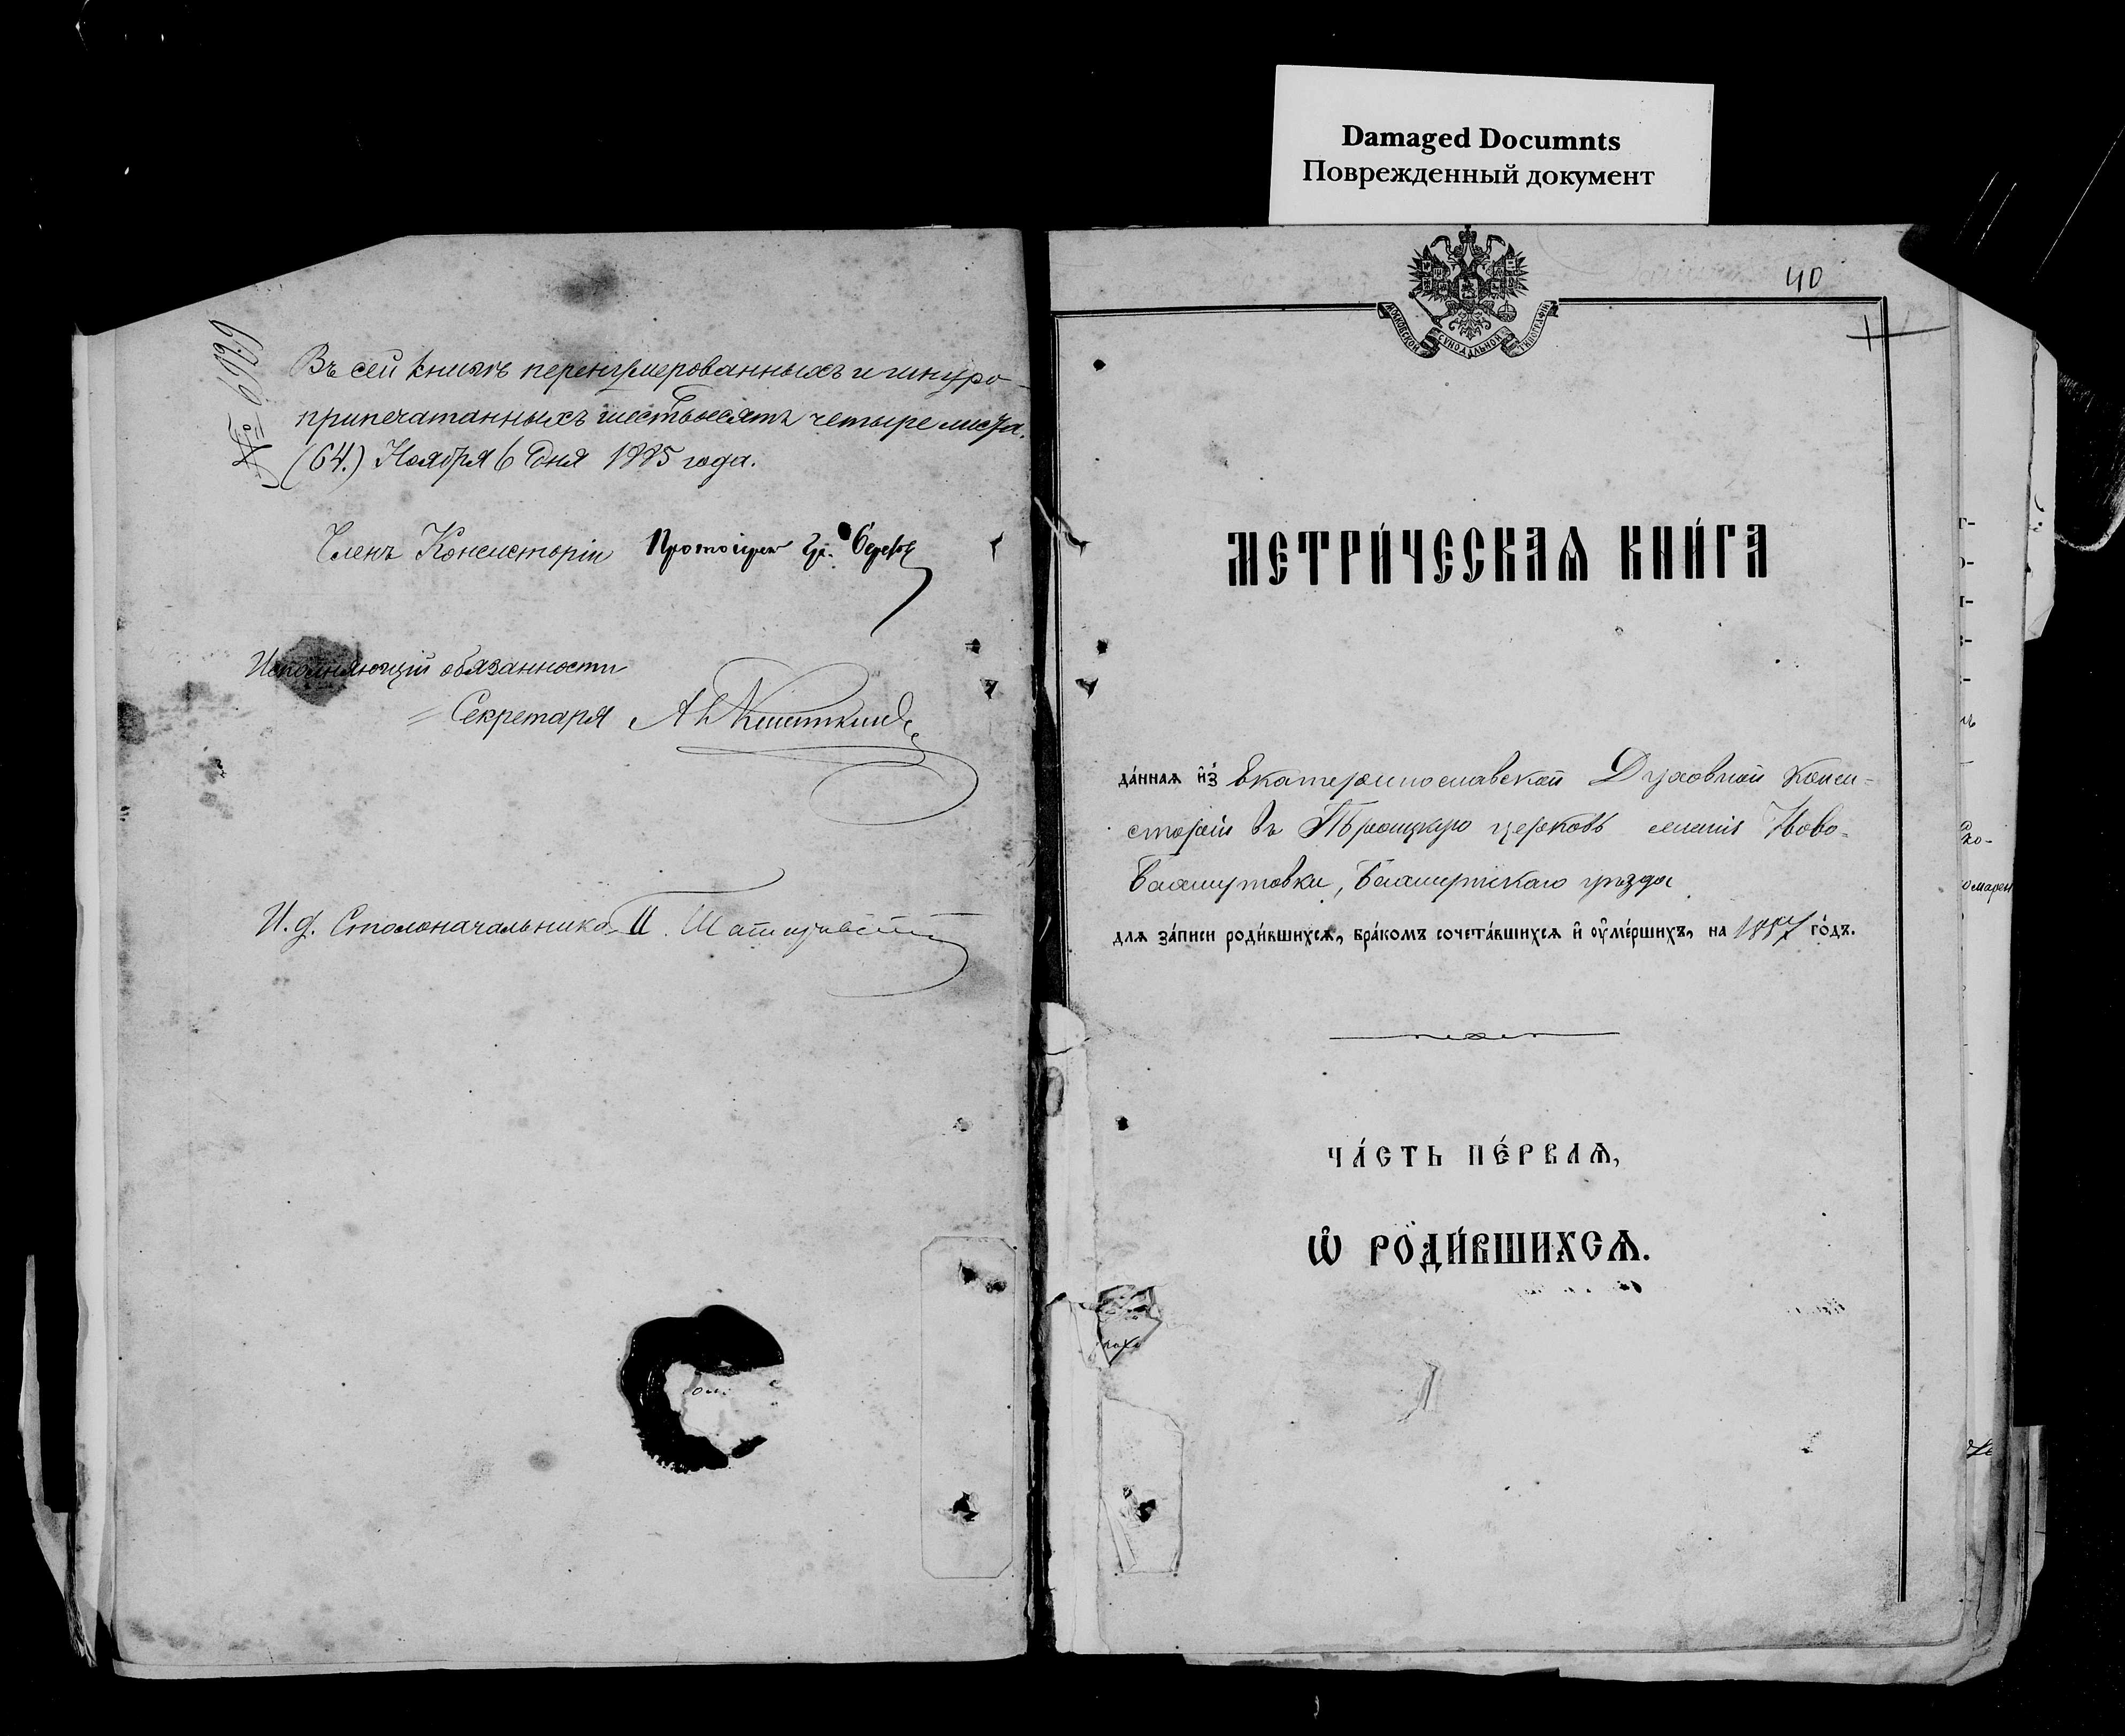 Damaged Documnts
Поврежденный документ
№ 6929
Въ сей книгѣ перенумерованныхъ и шнуро-
припечатанныхъ шестьдесятъ четыре листа.
(64.) Ноября 6 дня 1885 года.
Членъ Консисторіи Протоіерей Гр.
Исполняющій обязанности
Секретаря
И. д. Столоначальника
40
МОСКОВСКОЙ СѴНОДАЛЬНОЙ ТИПОГРАФІИ
МЕТРИ́ЧЕСКАѦ КНИ́ГА
да́ннаѧ и҆з̾ Екатеринославской Духовной Конси-
сторіи въ Троицкую церковь Ново-
Бахмутовки, Бахмутскаго уѣзда
длѧ за́писи роди́вшихсѧ, бра́комъ сочета́вшихсѧ и҆ ᲂу҆ме́ршихъ, на 1887 го́дъ.
ЧА́СТЬ ПЕ́РВАѦ,
Ѡ҆ РОДИ́ВШИХСѦ.